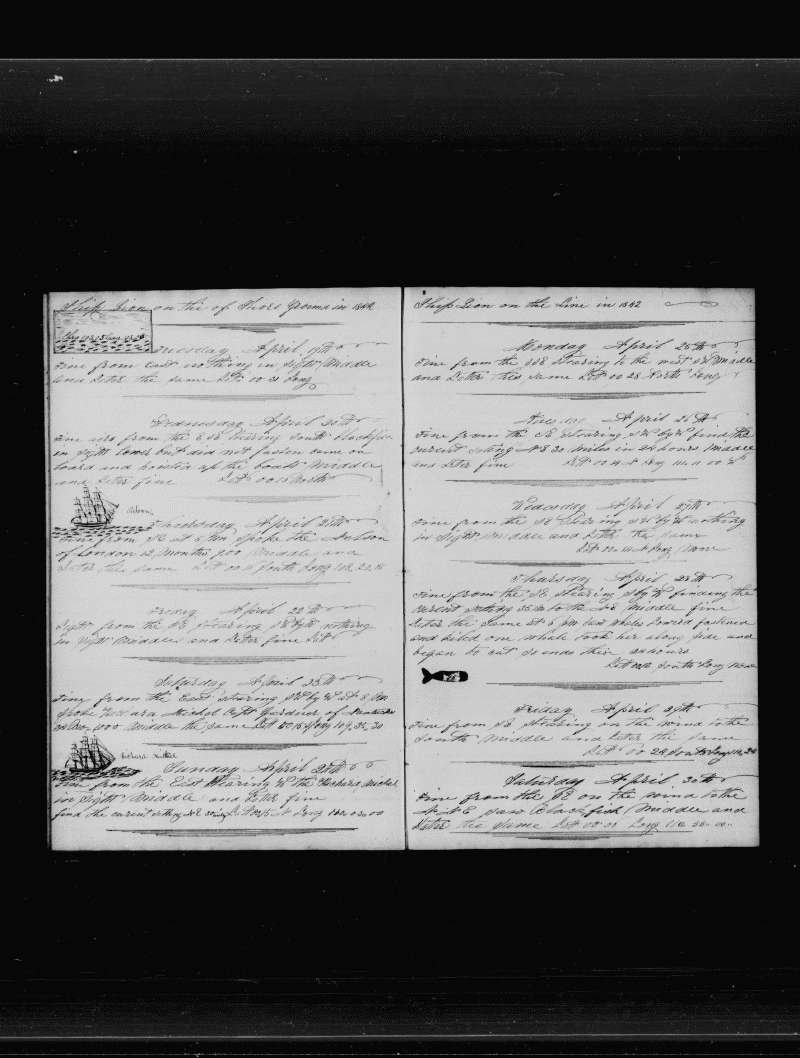 Ship Lion on the of Shore Ground in 1842
Tuesday April 19th
Fine from East nothing in sight Middle
and Later the same Lat 10 21 Long
Wednesday April 20th
Fine from the ESE Stearing South Blackfish
in sight lowerd but did not fasten came on
board and hoisted up the boats Middle
and Later fine Lat 00 North
Nelson
Thursday April 21th
Fine from SE at 5 PM Spoke the Nelson
of London 12 Months 700 Middle and
Later the same Lat 00 South Long
Friday April 22th
Light from the SE Stearing nothing
in sight Middle and Later fine Lat
Saturday April 23th
Fine from the East Stearing SW by W at 5 PM
Spoke Richard Michel Capt Gardner of Nantucket
Middle the same Lat 00 15 Long 107,35,30
Richard Mitchel
Sunday April 24th
Fine from the East Stearing W the Richard Michel
in sight Middle and Later fine
find the current setting NE Lat 00 15 N Long 00
Ship Lion on the Line in 1842
Monday April 25th
Fine from the SSE Stearing to the west Middle
and Later the same Lat 00 28 North Long
Tuesday April 26th
Fine from the SE Stearing SW by W find the
current seting NE 30 miles in 24 hours Middle
and Later fine Lat 00 N Long 111 11 00 W
Wedsday April 27th
Fine from the SE Stearing SW by W nothing
in sight Middle and Later the same
Lat 00 Long None
Tharsday April 28th
Fine from the SE Stearing S by W finding the
curent setting 35 m to the NE Middle fine
Later the same at 6 PM saw Whales Lowerd fastened
and kiled one whale took her along side and
began to cut So ends their 24 hours
Lat South Long None
Friday April 29th
Fine from SE Stearing on the wind to the
South Middle and Later the same
Lat 00 28 South Long
Saturday April 30th
Fine from the SE on the wind to the
saw Blackfish Middle and
Later the same Lat 00 Long 112